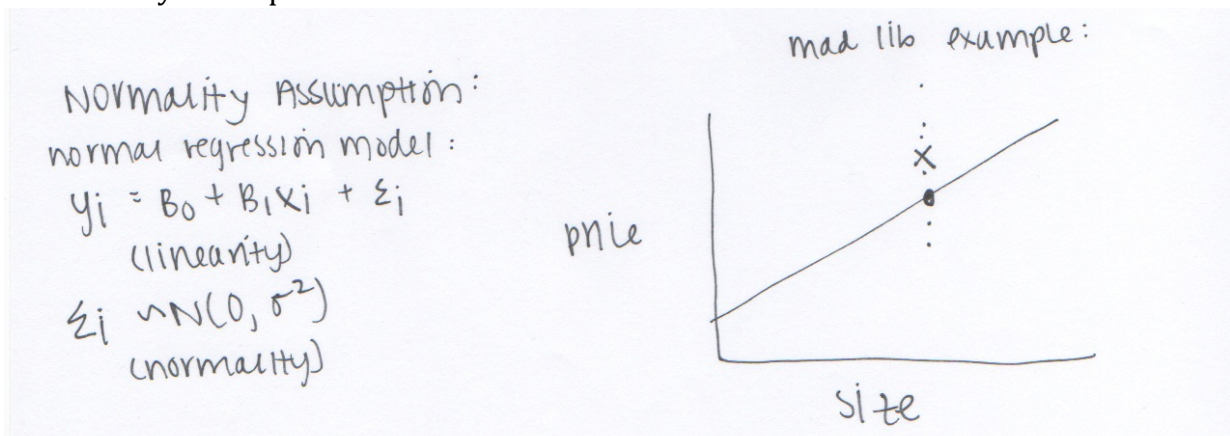 Normality Assumption:
normal regression model:
yi = B0 + B1xi + εi
(linearity)
εi ~N(0, σ²)
(normality)
mad lib example:
x
price
size